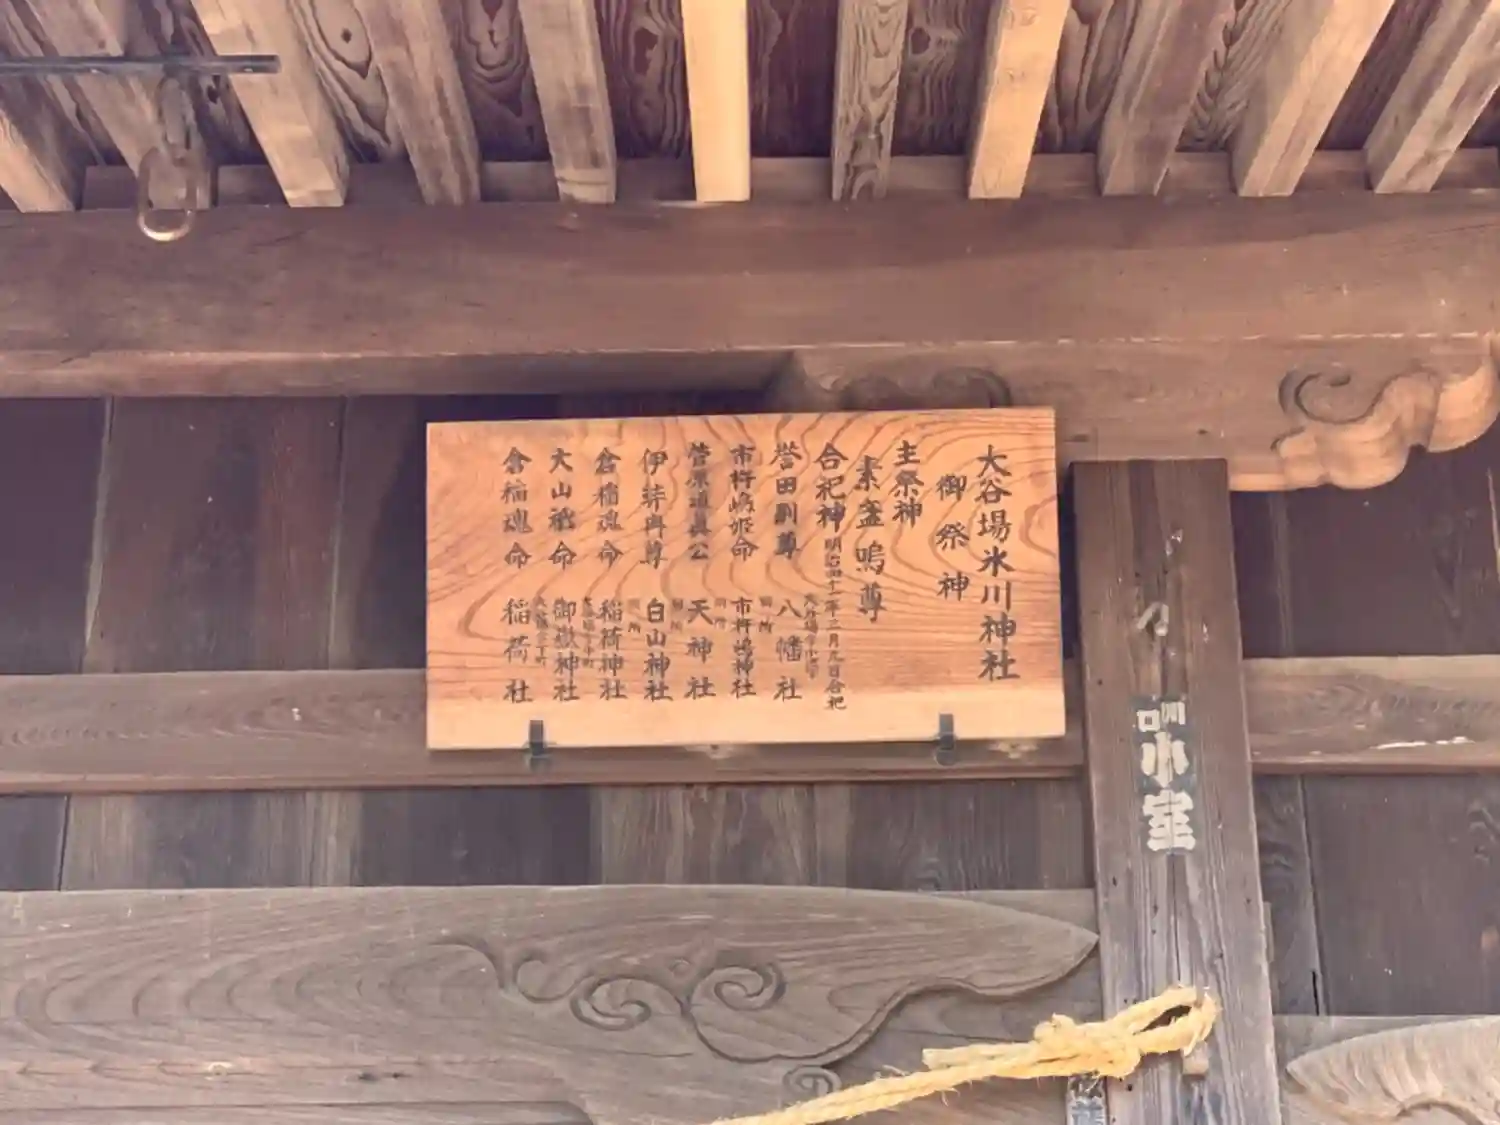 大谷場氷川神社
御祭神
主祭神
素盞嗚尊
合祀神 明治四十一年三月九日合祀
誉田別尊 八幡社
市杵嶋姫命 市杵嶋神社
菅原道真公 天神社
伊弉冉尊 白山神社
倉稲魂命 稲荷神社
大山祇命 御嶽神社
倉稲魂命 稲荷社
小室